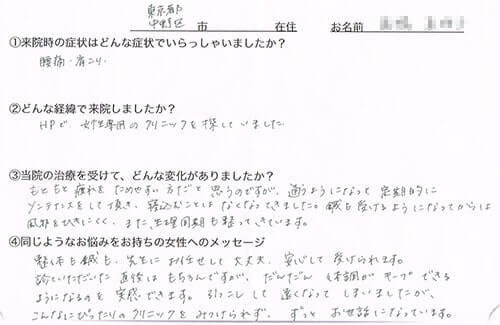 東京都
中野区 市 在住 お名前
①来院時の症状はどんな症状でいらっしゃいましたか？
腰痛・肩こり
②どんな経緯で来院しましたか？
HPで、女性専用のクリニックを探していました
③当院の治療を受けて、どんな変化がありましたか？
もともと疲れをためやすい方だと思うのですが、通うようになって定期的に
メンテナンスをして頂き、寝込むことはなくなってきました。鍼も受けるようになってからは
風邪をひきにくく、また、生理周期も整ってきています。
④同じようなお悩みをお持ちの女性へのメッセージ
整体も鍼も、先生にお任せして大丈夫、安心して受けられます。
診ていただいた直後はもちろんですが、だんだん体調がキープできる
ようになるのを実感できます。引っこしして遠くなってしまいましたが、
こんなにぴったりのクリニックをみつけられず、ずっとお世話になっています。